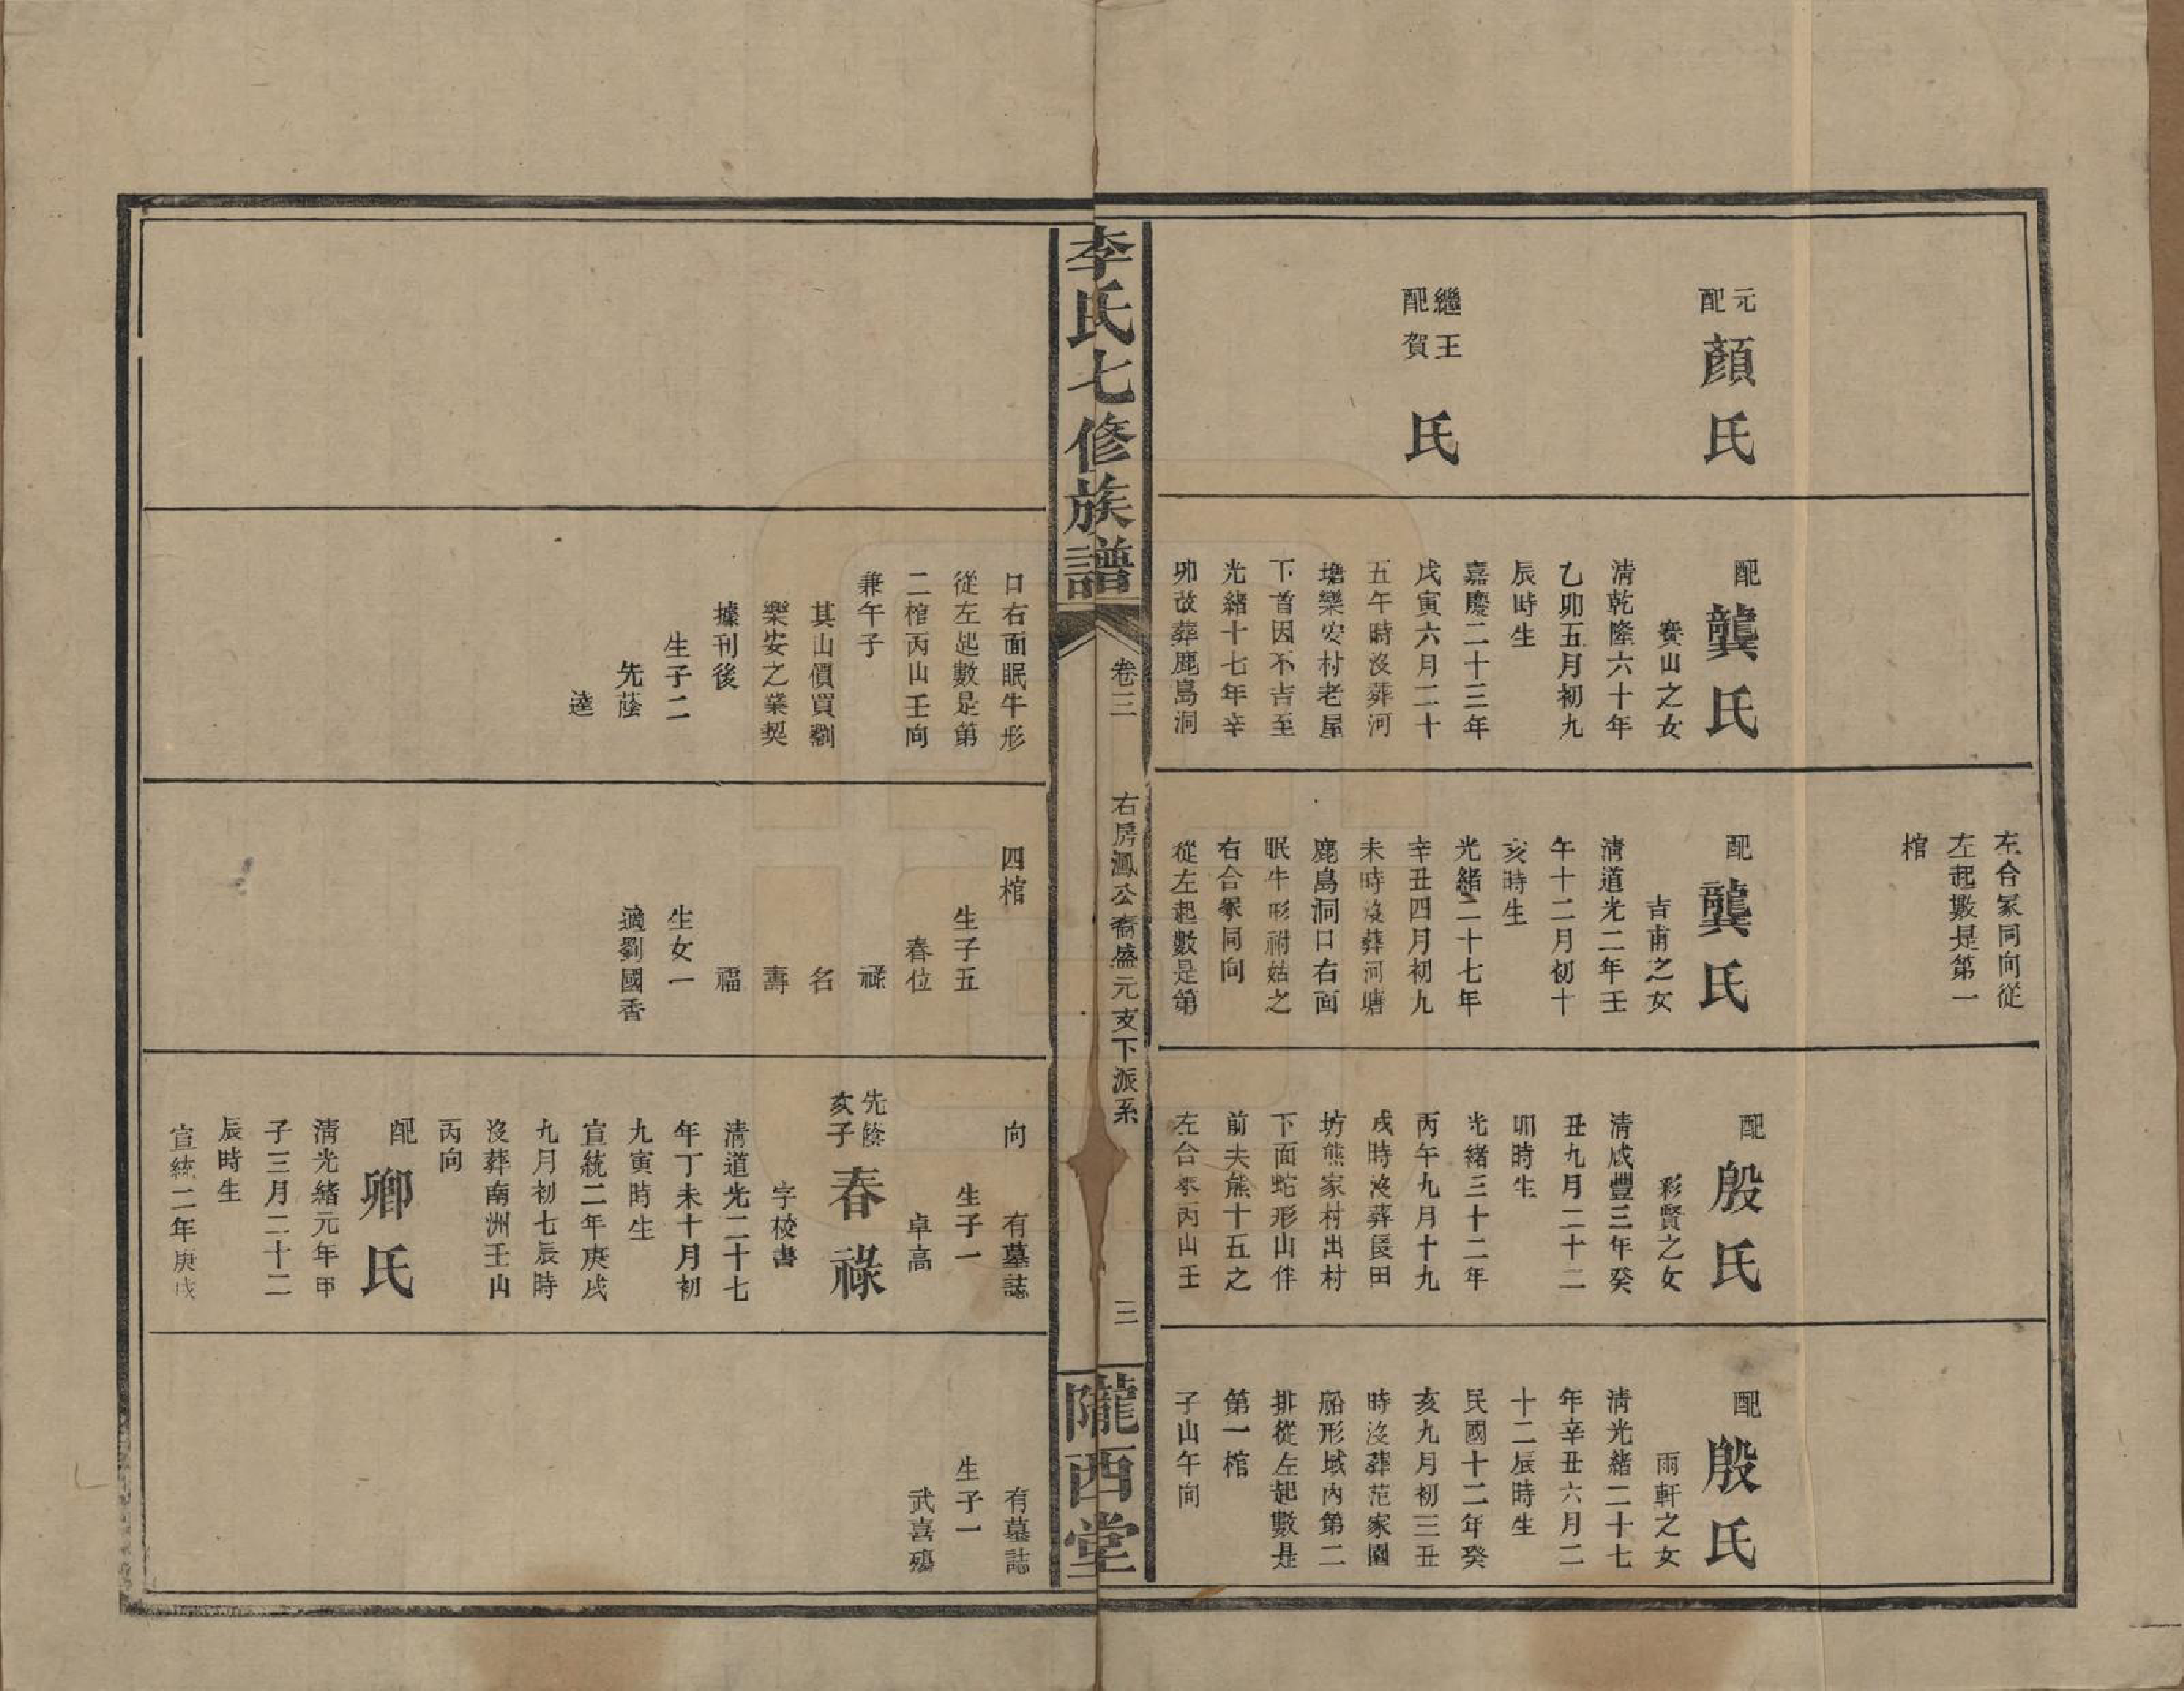 元配顏氏
繼配王賀氏
配龔氏
賽山之女
清乾隆六十年
乙卯五月初九
辰時生
嘉慶二十三年
戊寅六月二十
五午時沒葬河
塘樂安村老屋
下首因不吉至
光緒十七年辛
卯改葬鹿島洞
左合冢同向從
左起數是第一
棺
配龔氏
吉甫之女
清道光二年壬
午十二月初十
亥時生
光緒二十七年
辛丑四月初九
未時沒葬河塘
鹿島洞口右面
眠牛形祔姑之
右合冢同向
從左起數是第
配殷氏
彩賢之女
清咸豐三年癸
丑九月二十二
卯時生
光緒三十二年
丙午九月十九
戌時沒葬長田
坊熊家村出村
下面蛇形山伴
前夫熊十五之
左合冢丙山壬
配殷氏
雨軒之女
清光緒二十七
年辛丑六月二
十二辰時生
民國十二年癸
亥九月初三丑
時沒葬范家園
船形域內第二
排從左起數是
第一棺
子山午向
李氏七修族譜
卷三
右房鳳公裔盛元支下派系
三
隴西堂
口右面眠牛形
從左起數是第
二棺丙山壬向
兼午子
其山價買劉
樂安之業契
據刊後
生子二
先蔭
逵
四棺
生子五
春位
祿
名
壽
福
生女一
適劉國香
向
有墓誌
生子一
卓高
先餘亥子春祿
字校書
清道光二十七
年丁未十月初
九寅時生
宣統二年庚戌
九月初七辰時
沒葬南洲壬山
丙向
配卿氏
清光緒元年甲
子三月二十二
辰時生
宣統二年庚戌
有墓誌
生子一
武喜殤